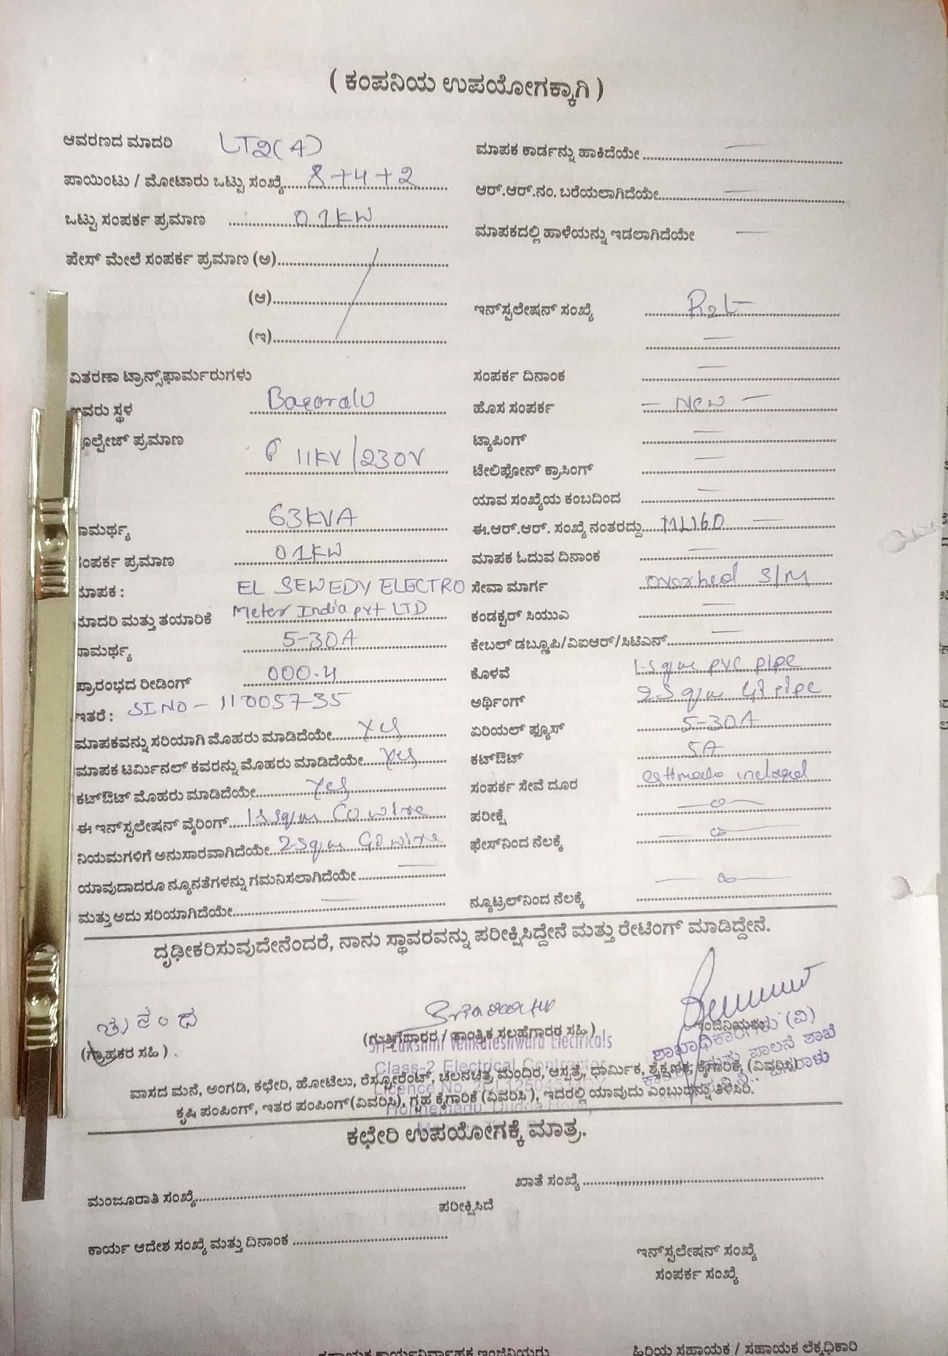 ( ಕಂಪನಿಯ ಉಪಯೋಗಕ್ಕಾಗಿ )
ಆವರಣದ ಮಾದರಿ LT2(4)
ಪಾಯಿಂಟು / ಮೋಟಾರು ಒಟ್ಟು ಸಂಖ್ಯೆ 8+4+2
ಒಟ್ಟು ಸಂಪರ್ಕ ಪ್ರಮಾಣ 0.1KW
ಪೇಸ್ ಮೇಲೆ ಸಂಪರ್ಕ ಪ್ರಮಾಣ (ಅ)
(ಆ)
(ಇ)
ವಿತರಣಾ ಟ್ರಾನ್ಸ್‌ಫಾರ್ಮರುಗಳು
ಇವರು ಸ್ಥಳ
ವೋಲ್ಟೇಜ್ ಪ್ರಮಾಣ 11KV/230V
ಸಾಮರ್ಥ್ಯ 63KVA
ಸಂಪರ್ಕ ಪ್ರಮಾಣ 01KW
ಮಾಪಕ : EL SEWEDY ELECTRO
ಮಾದರಿ ಮತ್ತು ತಯಾರಿಕೆ Meter India pvt LTD
ಸಾಮರ್ಥ್ಯ 5-30A
ಪ್ರಾರಂಭದ ರೀಡಿಂಗ್ 000.4
ಇತರೆ : SI NO - 11005735
ಮಾಪಕವನ್ನು ಸರಿಯಾಗಿ ಮೊಹರು ಮಾಡಿದೆಯೇ Yes
ಮಾಪಕ ಟರ್ಮಿನಲ್ ಕವರನ್ನು ಮೊಹರು ಮಾಡಿದೆಯೇ Yes
ಕಟ್‌ಔಟ್ ಮೊಹರು ಮಾಡಿದೆಯೇ Yes
ಈ ಇನ್‌ಸ್ಟಲೇಷನ್ ವೈರಿಂಗ್ wire
ನಿಯಮಗಳಿಗೆ ಅನುಸಾರವಾಗಿದೆಯೇ wire
ಯಾವುದಾದರೂ ನ್ಯೂನತೆಗಳನ್ನು ಗಮನಿಸಲಾಗಿದೆಯೇ
ಮತ್ತು ಅದು ಸರಿಯಾಗಿದೆಯೇ
ಮಾಪಕ ಕಾರ್ಡನ್ನು ಹಾಕಿದೆಯೇ
ಆರ್.ಆರ್.ನಂ. ಬರೆಯಲಾಗಿದೆಯೇ
ಮಾಪಕದಲ್ಲಿ ಹಾಳೆಯನ್ನು ಇಡಲಾಗಿದೆಯೇ
ಇನ್‌ಸ್ಟಲೇಷನ್ ಸಂಖ್ಯೆ
ಸಂಪರ್ಕ ದಿನಾಂಕ
ಹೊಸ ಸಂಪರ್ಕ - New -
ಟ್ಯಾಪಿಂಗ್
ಟೇಲಿಫೋನ್ ಕ್ರಾಸಿಂಗ್
ಯಾವ ಸಂಖ್ಯೆಯ ಕಂಬದಿಂದ
ಈ.ಆರ್.ಆರ್. ಸಂಖ್ಯೆ ನಂತರದ್ದು ML160
ಮಾಪಕ ಓದುವ ದಿನಾಂಕ
ಸೇವಾ ಮಾರ್ಗ overhed S/M
ಕಂಡಕ್ಟರ್ ಸಿಯುಎ
ಕೇಬಲ್ ಡಬ್ಲೂಪಿ/ವಿಐಆರ್/ಸಿಟಿಎನ್
ಕೊಳವೆ pvc pipe
ಅರ್ಥಿಂಗ್ GI pipe
ಏರಿಯಲ್ ಫ್ಯೂಸ್ 5-30A
ಕಟ್‌ಔಟ್ 5A
ಸಂಪರ್ಕ ಸೇವೆ ದೂರ
ಪರೀಕ್ಷೆ
ಫೇಸ್‌ನಿಂದ ನೆಲಕ್ಕೆ
ನ್ಯೂಟ್ರಲ್‌ನಿಂದ ನೆಲಕ್ಕೆ
ದೃಢೀಕರಿಸುವುದೇನೆಂದರೆ, ನಾನು ಸ್ಥಾವರವನ್ನು ಪರೀಕ್ಷಿಸಿದ್ದೇನೆ ಮತ್ತು ರೇಟಿಂಗ್ ಮಾಡಿದ್ದೇನೆ.
(ಗ್ರಾಹಕರ ಸಹಿ)
(ಗುತ್ತಿಗೆದಾರರ / ತಾಂತ್ರಿಕ ಸಲಹೆಗಾರರ ಸಹಿ)
Sri Lakshmi Venkateshwara Electricals
Class-2 Electrical Contractor
ಶಾಖಾಧಿಕಾರಿಗಳು (ವಿ)
ವಾಸದ ಮನೆ, ಅಂಗಡಿ, ಕಛೇರಿ, ಹೋಟೆಲು, ರೆಸ್ಟೋರೆಂಟ್, ಚಲನಚಿತ್ರ, ಮಂದಿರ, ಆಸ್ಪತ್ರೆ, ಧಾರ್ಮಿಕ, ಶೈಕ್ಷಣಿಕ, ಕೈಗಾರಿಕೆ (ವಿವರಿಸಿ)
ಕೃಷಿ ಪಂಪಿಂಗ್, ಇತರ ಪಂಪಿಂಗ್ (ವಿವರಿಸಿ), ಗೃಹ ಕೈಗಾರಿಕೆ (ವಿವರಿಸಿ), ಇದರಲ್ಲಿ ಯಾವುದು ಎಂಬುದನ್ನು ತಿಳಿಸಿರಿ.
ಕಛೇರಿ ಉಪಯೋಗಕ್ಕೆ ಮಾತ್ರ.
ಮಂಜೂರಾತಿ ಸಂಖ್ಯೆ
ಖಾತೆ ಸಂಖ್ಯೆ
ಪರೀಕ್ಷಿಸಿದೆ
ಕಾರ್ಯ ಆದೇಶ ಸಂಖ್ಯೆ ಮತ್ತು ದಿನಾಂಕ
ಇನ್‌ಸ್ಟಲೇಷನ್ ಸಂಖ್ಯೆ
ಸಂಪರ್ಕ ಸಂಖ್ಯೆ
ಸಹಾಯಕ ಕಾರ್ಯನಿರ್ವಾಹಕ ಇಂಜಿನಿಯರು
ಹಿರಿಯ ಸಹಾಯಕ / ಸಹಾಯಕ ಲೆಕ್ಕಧಿಕಾರಿ